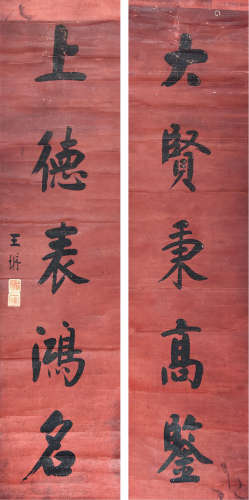 大賢秉高鑒
上德表鴻名